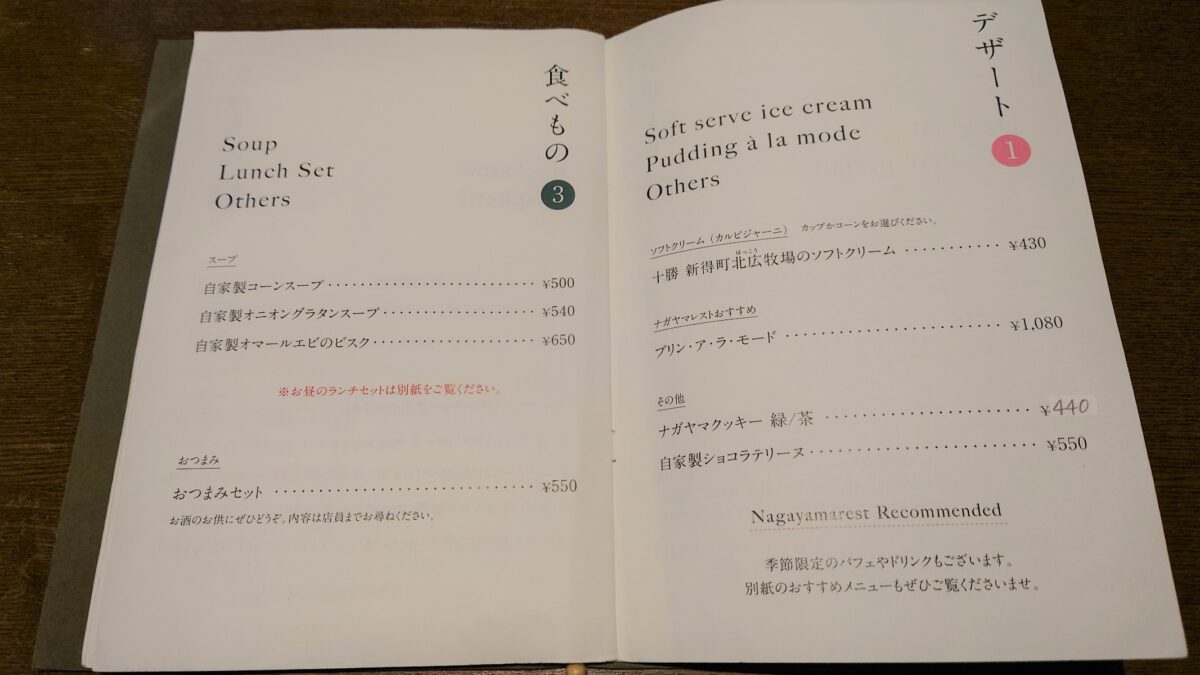 食べもの
3
Soup
Lunch Set
Others
スープ
自家製コーンスープ ¥500
自家製オニオングラタンスープ ¥540
自家製オマールエビのビスク ¥650
※お昼のランチセットは別紙をご覧ください。
おつまみ
おつまみセット ¥550
お酒のお供にぜひどうぞ。内容は店員までお尋ねください。
デザート
1
Soft serve ice cream
Pudding à la mode
Others
ソフトクリーム（カルピジャーニ） カップかコーンをお選びください。
ほっこう
十勝 新得町北広牧場のソフトクリーム ¥430
ナガヤマレストおすすめ
プリン・ア・ラ・モード ¥1,080
その他
ナガヤマクッキー 緑/茶 ¥440
自家製ショコラテリーヌ ¥550
Nagayamarest Recommended
季節限定のパフェやドリンクもございます。
別紙のおすすめメニューもぜひご覧くださいませ。